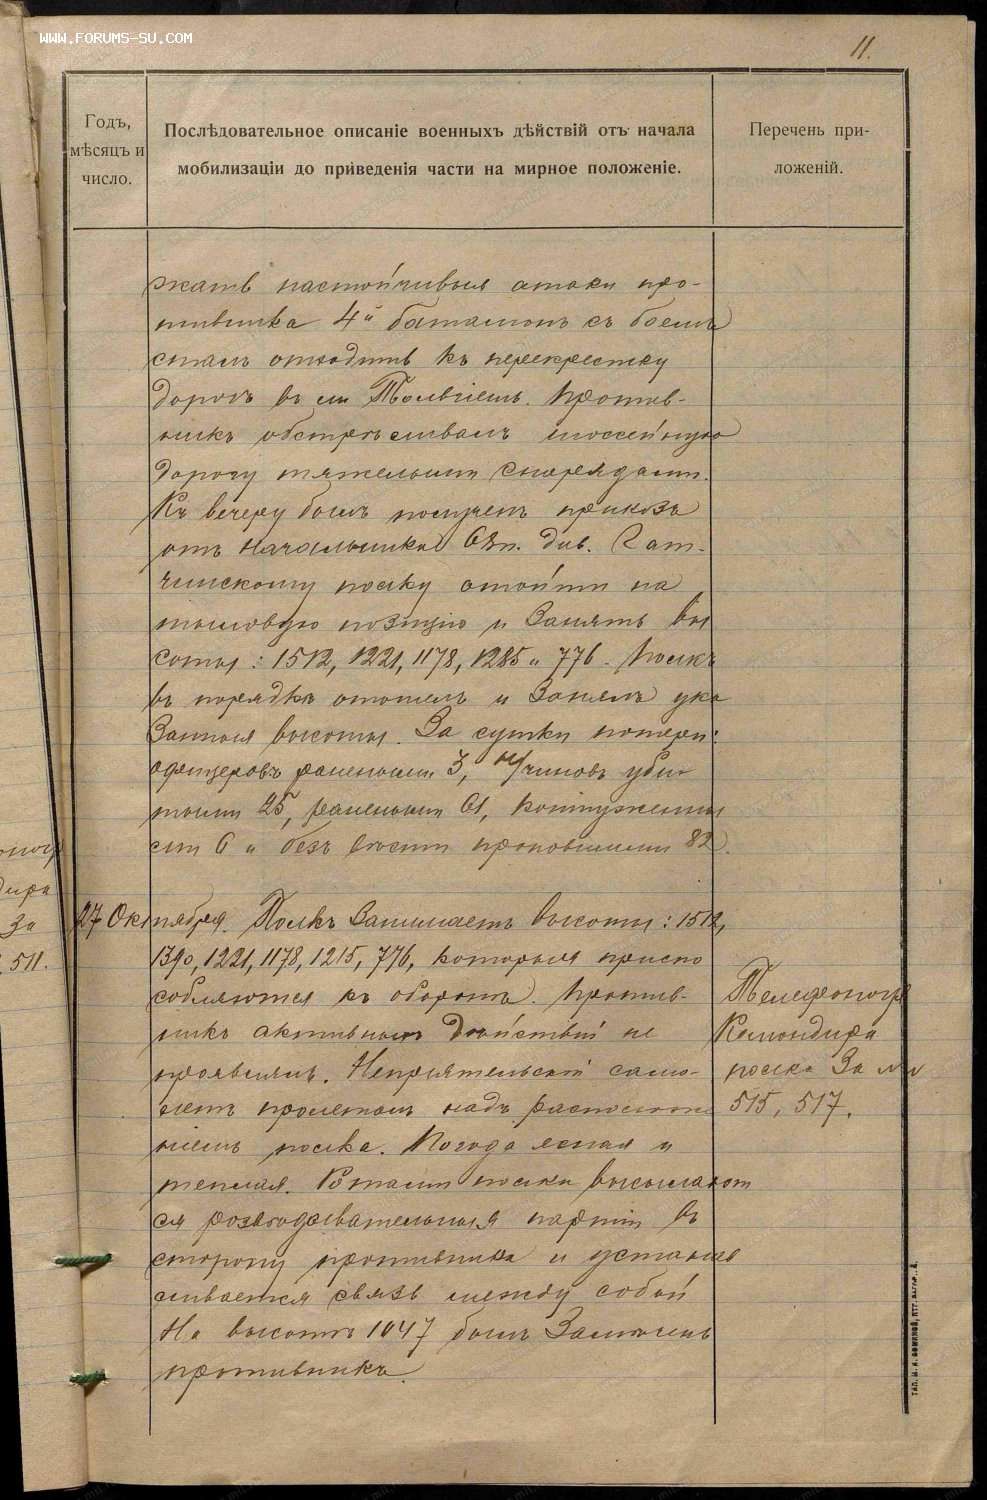 WWW.FORUMS-SU.COM
11.
Годъ,
мѣсяцъ и
число.
Послѣдовательное описаніе военныхъ дѣйствій отъ начала
мобилизаціи до приведенія части на мирное положеніе.
Перечень при-
ложеній.
жать настойчивыя атаки про-
тивника 4й баталіонъ съ боемъ
сталъ отходить къ перекрестку
дорогъ въ Против-
никъ обстрѣливалъ шоссейную
дорогу тяжелыми снарядами.
Къ вечеру былъ полученъ приказъ
отъ начальника див. Гат-
чинскому полку отойти на
тыловую позицію и занять вы
соты: 1512, 1221, 1178, 1285 и 776. Полкъ
въ порядкѣ отошелъ и занялъ ука
занныя высоты. За сутки потери:
офицеровъ ранеными 3, н/чиновъ уби
тыми 25, ранеными 61, контуженны
ми 6 и безъ вѣсти пропавшими 82.
27 Октября. Полкъ занимаетъ высоты: 1512,
1390, 1221, 1178, 1215, 776, которыя приспо
собляются къ оборонѣ. Против-
никъ активныхъ дѣйствій не
проявлялъ. Непріятельскій само-
летъ пролеталъ надъ располож
ніемъ полка. Погода ясная и
теплая. Ротами полка высылают
ся развѣдывательныя партіи въ
сторону противника и устанав
ливается связь между собой
На высотѣ 1047 былъ замѣченъ
противникъ.
Телефоногр
Командира
полка за №№
515, 517.
дира
за
511.